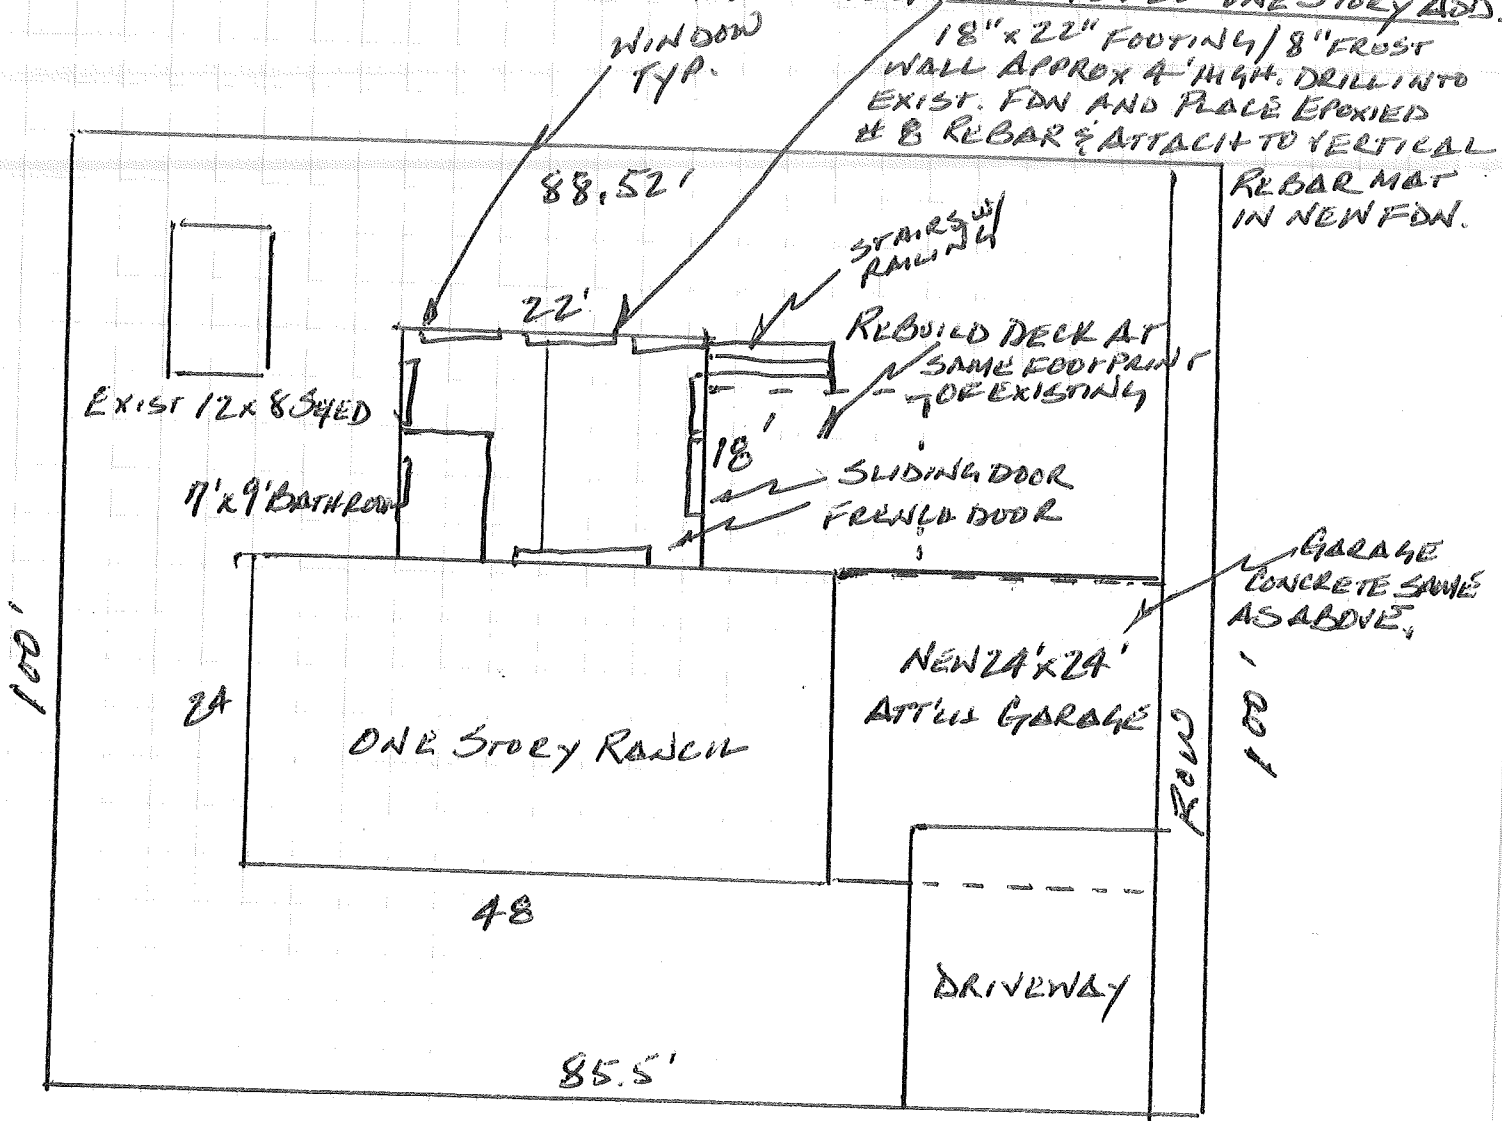 ONE STORY ADD.
18" x 22" FOOTING / 8" FROST
WALL APPROX 4' HIGH. DRILL INTO
EXIST. FDN AND PLACE EPOXIED
# 8 REBAR & ATTACH TO VERTICAL
REBAR MAT
IN NEW FDN.
WINDOW
TYP.
88.52'
STAIRS W/
RAILING
22'
REBUILD DECK AT
SAME FOOTPRINT
OF EXISTING
EXIST 12x8 SHED
18'
7'x9' BATHROOM
SLIDING DOOR
FRENCH DOOR
GARAGE
CONCRETE SAME
AS ABOVE.
100'
24
ONE STORY RANCH
NEW 24'x24'
ATT'CH GARAGE
ROW
100'
48
DRIVEWAY
85.5'